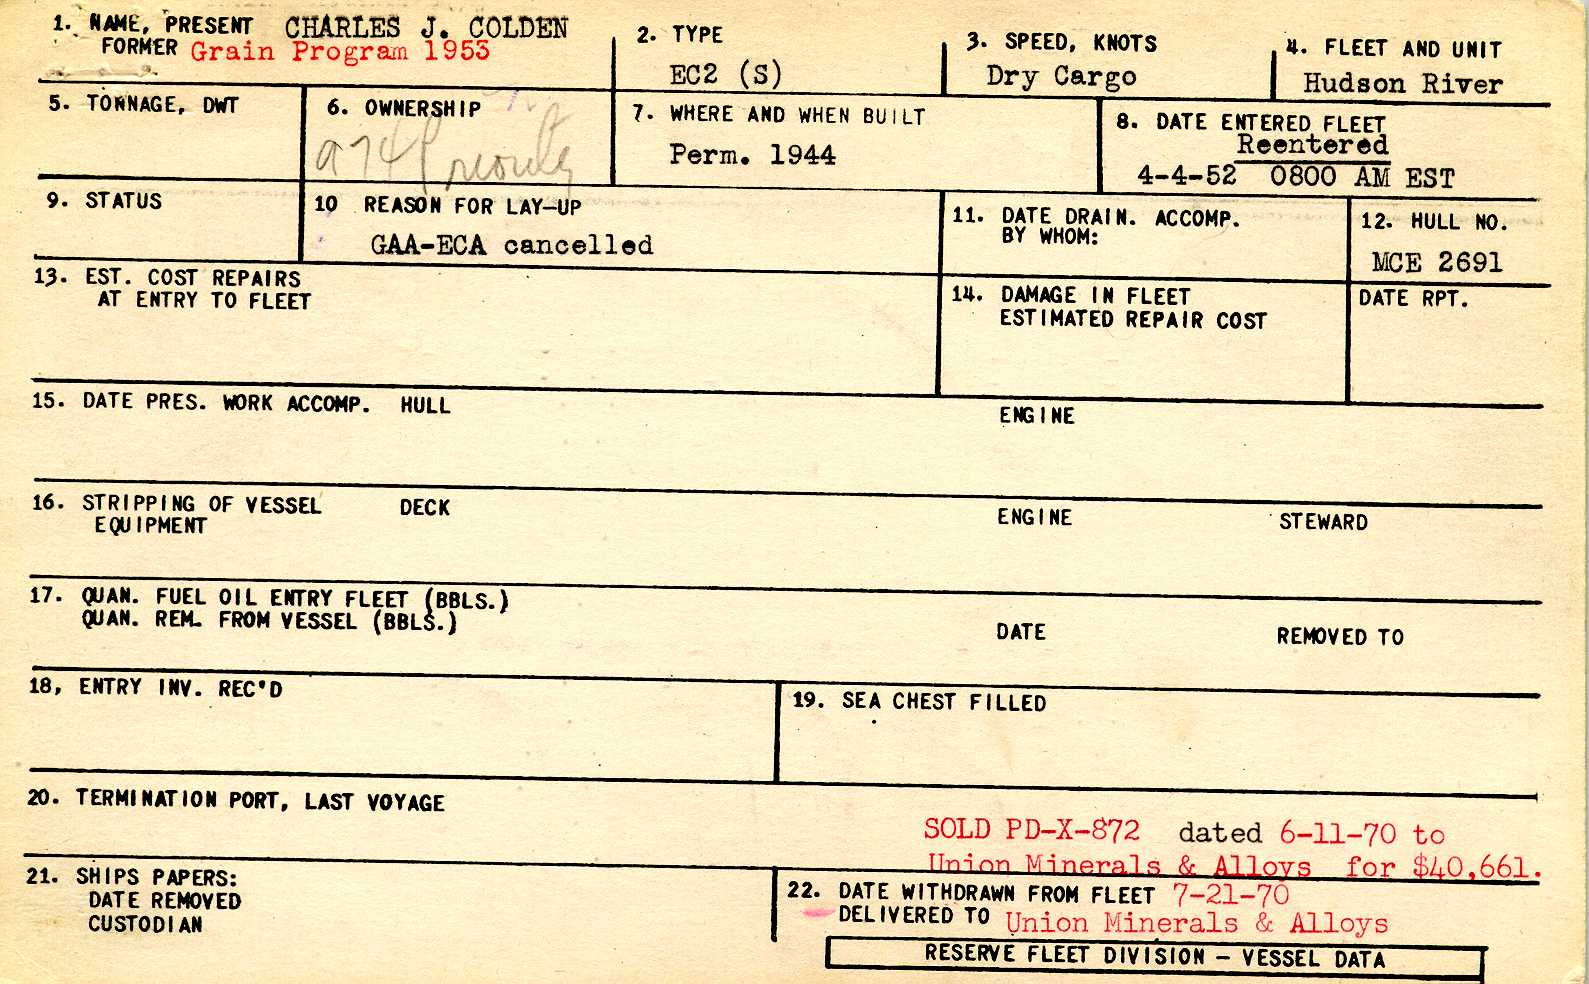 1. NAME, PRESENT CHARLES J. COLDEN
FORMER Grain Program 1953
2. TYPE
EC2 (S)
3. SPEED, KNOTS
Dry Cargo
4. FLEET AND UNIT
Hudson River
5. TONNAGE, DWT
6. OWNERSHIP
974 Priority
7. WHERE AND WHEN BUILT
Perm. 1944
8. DATE ENTERED FLEET
Reentered
4-4-52 0800 AM EST
9. STATUS
10 REASON FOR LAY-UP
GAA-ECA cancelled
11. DATE DRAIN. ACCOMP.
BY WHOM:
12. HULL NO.
MCE 2691
13. EST. COST REPAIRS
AT ENTRY TO FLEET
14. DAMAGE IN FLEET
ESTIMATED REPAIR COST
DATE RPT.
15. DATE PRES. WORK ACCOMP. HULL
ENGINE
16. STRIPPING OF VESSEL DECK
EQUIPMENT
ENGINE
STEWARD
17. QUAN. FUEL OIL ENTRY FLEET (BBLS.)
QUAN. REM. FROM VESSEL (BBLS.)
DATE
REMOVED TO
18, ENTRY INV. REC'D
19. SEA CHEST FILLED
20. TERMINATION PORT, LAST VOYAGE
SOLD PD-X-872 dated 6-11-70 to
Union Minerals & Alloys for $40,661.
21. SHIPS PAPERS:
DATE REMOVED
CUSTODIAN
22. DATE WITHDRAWN FROM FLEET 7-21-70
DELIVERED TO Union Minerals & Alloys
RESERVE FLEET DIVISION - VESSEL DATA